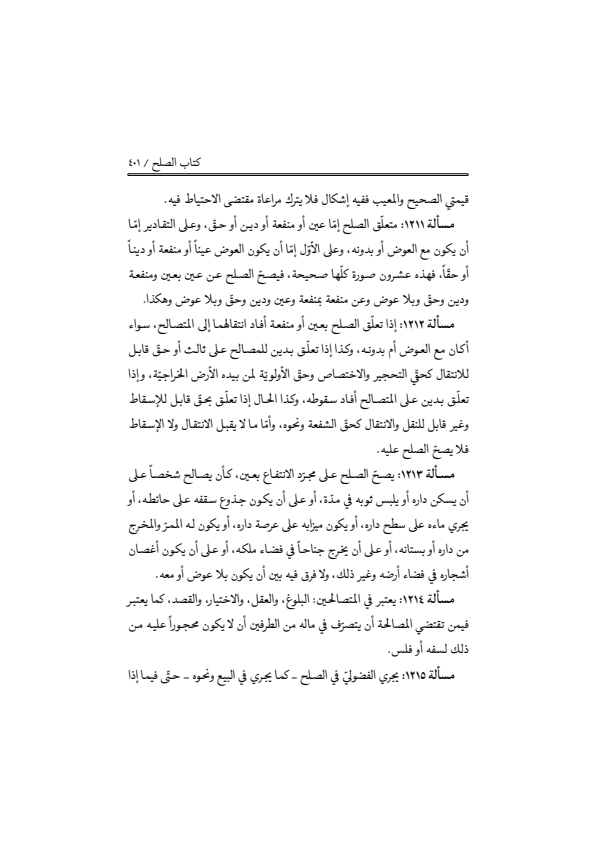 كتاب الصلح / ٤٠١
قيمتي الصحيح والمعيب ففيه إشكال فلا يترك مراعاة مقتضى الاحتياط فيه.
مسألة ١٢١١: متعلّق الصلح إمّا عين أو منفعة أو دين أو حقّ، وعلى التقادير إمّا
أن يكون مع العوض أو بدونه، وعلى الأوّل إمّا أن يكون العوض عيناً أو منفعة أو ديناً
أو حقّاً، فهذه عشرون صورة كلّها صحيحة، فيصحّ الصلح عن عين بعين ومنفعة
ودين وحقّ وبلا عوض وعن منفعة بمنفعة وعين ودين وحقّ وبلا عوض وهكذا.
مسألة ١٢١٢: إذا تعلّق الصلح بعين أو منفعة أفاد انتقالهما إلى المتصالح، سواء
أكان مع العوض أم بدونه، وكذا إذا تعلّق بدين للمصالح على ثالث أو حقّ قابل
للانتقال كحقّي التحجير والاختصاص وحقّ الأولويّة لمن بيده الأرض الخراجيّة، وإذا
تعلّق بدين على المتصالح أفاد سقوطه، وكذا الحال إذا تعلّق بحقّ قابل للإسقاط
وغير قابل للنقل والانتقال كحقّ الشفعة ونحوه، وأمّا ما لا يقبل الانتقال ولا الإسقاط
فلا يصحّ الصلح عليه.
مسألة ١٢١٣: يصحّ الصلح على مجرّد الانتفاع بعين، كأن يصالح شخصاً على
أن يسكن داره أو يلبس ثوبه في مدّة، أو على أن يكون جذوع سقفه على حائطه، أو
يجري ماءه على سطح داره، أو يكون ميزابه على عرصة داره، أو يكون له الممرّ والمخرج
من داره أو بستانه، أو على أن يخرج جناحاً في فضاء ملكه، أو على أن يكون أغصان
أشجاره في فضاء أرضه وغير ذلك، ولا فرق فيه بين أن يكون بلا عوض أو معه.
مسألة ١٢١٤: يعتبر في المتصالحين: البلوغ، والعقل، والاختيار، والقصد، كما يعتبر
فيمن تقتضي المصالحة أن يتصرّف في ماله من الطرفين أن لا يكون محجوراً عليه من
ذلك لسفه أو فلس.
مسألة ١٢١٥: يجري الفضوليّ في الصلح ـ كما يجري في البيع ونحوه ـ حتّى فيما إذا